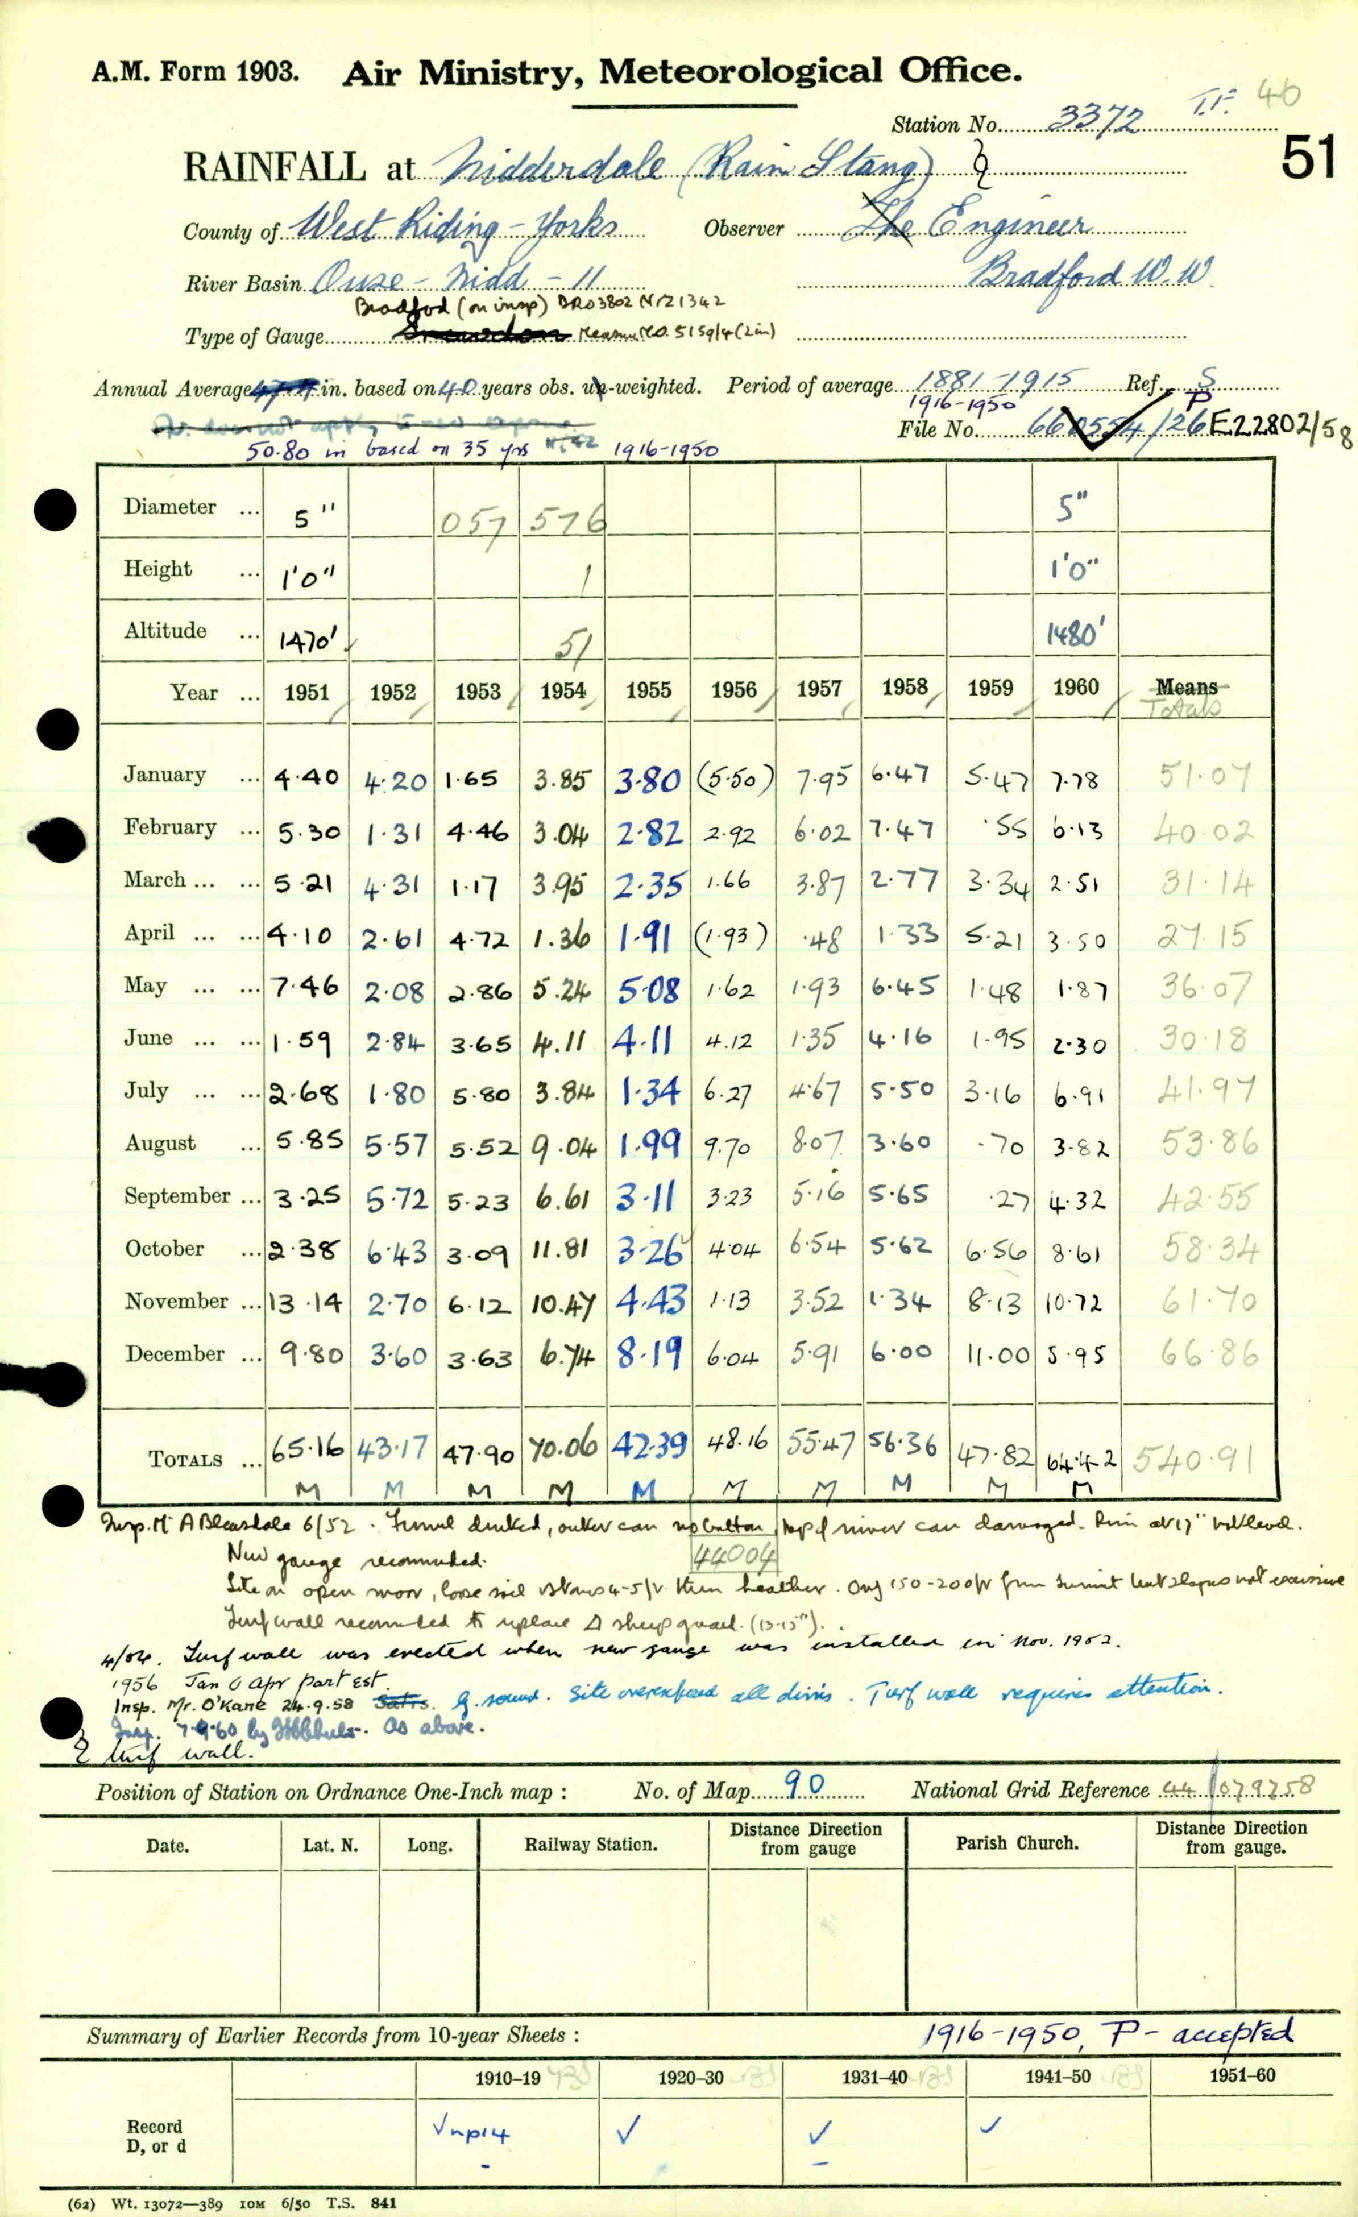 A.M. Form 1903. Air Ministry, Meteorological Office.
T.F. 40
Station No. 3372
51
RAINFALL at Nidderdale (Rain Stang)
County of West Riding - Yorks Observer The Engineer
River Basin Ouse - Nidd - 11 Bradford W.W.
Bradford (on insp) BR03802 Nr21342
Type of Gauge Snowdon Measure M.O. 5159/4 (2in)
Annual Average in. based on 40 years obs. un-weighted. Period of average 1881-1915 Ref. S
1916-1950 P
File No. 660554/26 E22802/58
50.80 in based on 35 yrs 1916-1950
Diameter ... 5" 057 576 5"
Height ... 1'0" 1 1'0"
Altitude ... 1470' 51 1480'
Year ... 1951 1952 1953 1954 1955 1956 1957 1958 1959 1960 Means
Totals
January ... 4.40 4.20 1.65 3.85 3.80 (5.50) 7.95 6.47 5.47 7.78 51.07
February ... 5.30 1.31 4.46 3.04 2.82 2.92 6.02 7.47 .55 6.13 40.02
March ... ... 5.21 4.31 1.17 3.95 2.35 1.66 3.87 2.77 3.34 2.51 31.14
April ... ... 4.10 2.61 4.72 1.36 1.91 (1.93) .48 1.33 5.21 3.50 27.15
May ... ... 7.46 2.08 2.86 5.24 5.08 1.62 1.93 6.45 1.48 1.87 36.07
June ... ... 1.59 2.84 3.65 4.11 4.11 4.12 1.35 4.16 1.95 2.30 30.18
July ... ... 2.68 1.80 5.80 3.84 1.34 6.27 4.67 5.50 3.16 6.91 41.97
August ... 5.85 5.57 5.52 9.04 1.99 9.70 8.07 3.60 .70 3.82 53.86
September ... 3.25 5.72 5.23 6.61 3.11 3.23 5.16 5.65 .27 4.32 42.55
October ... 2.38 6.43 3.09 11.81 3.26 4.04 6.54 5.62 6.56 8.61 58.34
November ... 13.14 2.70 6.12 10.47 4.43 1.13 3.52 1.34 8.13 10.72 61.70
December ... 9.80 3.60 3.63 6.74 8.19 6.04 5.91 6.00 11.00 5.95 66.86
TOTALS ... 65.16 43.17 47.90 70.06 42.39 48.16 55.47 56.36 47.82 64.42 540.91
M M M M M M M M M M
Insp. Mr A Bleasdale 6/52. Funnel dinked, outer can no bottom, top of inner can damaged. Rim at 17" not level.
New gauge recommended. 44004
Site on open moor, loose soil 4-5ft then heather. Only 150-200ft from summit but slopes not excessive
Turf wall recommended to replace Δ sheep guard. (13-15").
4/54. Turf wall was erected when new gauge was installed in Nov. 1952.
1956 Jan & Apr part est.
Insp. Mr. O'Kane 24.9.58 Satis. G. sound. Site overexposed all dirns. Turf wall requires attention.
Insp. 7.9.60 by As above.
turf wall.
Position of Station on Ordnance One-Inch map : No. of Map 90 National Grid Reference 44/079758
Date. Lat. N. Long. Railway Station. Distance Direction from gauge Parish Church. Distance Direction from gauge.
Summary of Earlier Records from 10-year Sheets : 1916-1950, P - accepted
1910–19 1920–30 1931–40 1941–50 1951–60
Record
D, or d
√ np14 √ √ √
(62) Wt. 13072—389 10M 6/50 T.S. 841